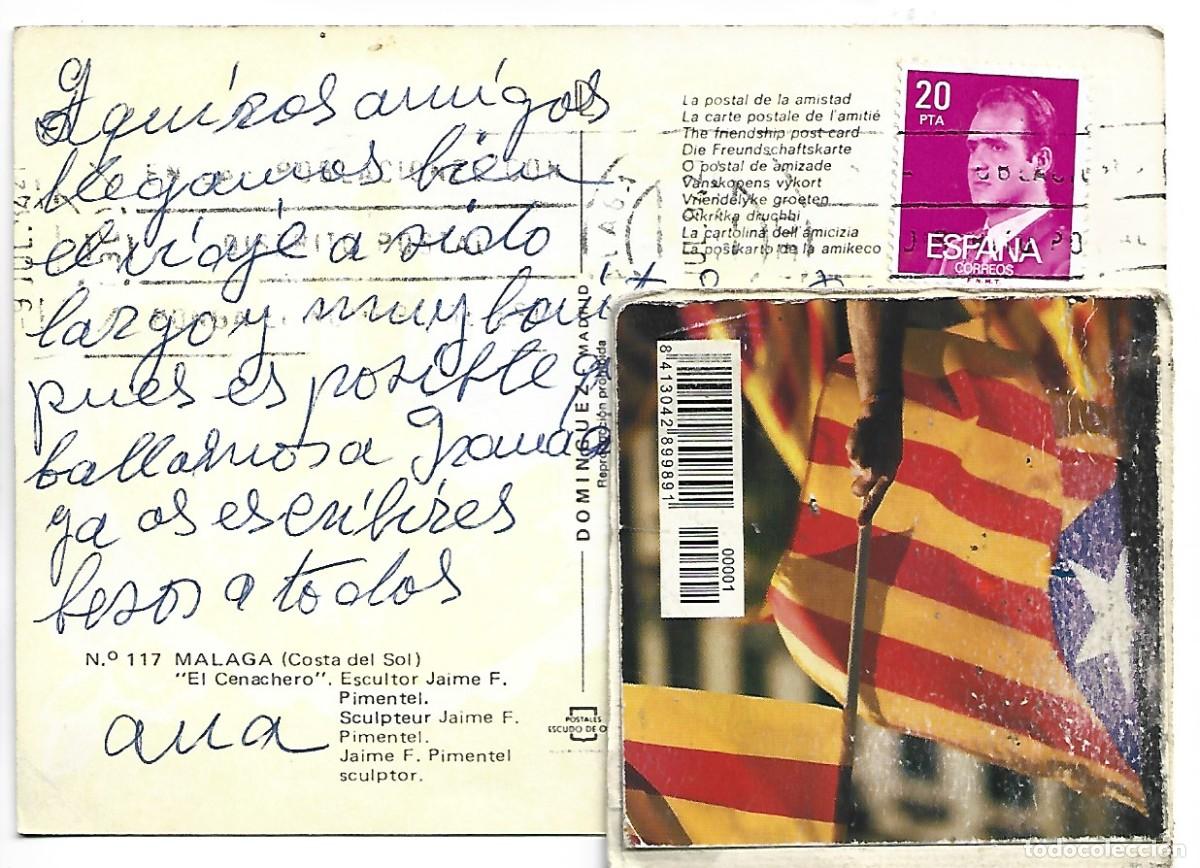 amigos
llegamos bien
el viaje a sido
largo y muy bonit
pues es posible q
ballamos a Granada
ya os escribires
besos a todos
N.º 117 MALAGA (Costa del Sol)
"El Cenachero". Escultor Jaime F.
Pimentel.
Sculpteur Jaime F.
Pimentel.
Jaime F. Pimentel
sculptor.
ana
DOMINGUEZ MADRID
Reproducción prohibida
POSTALES
ESCUDO DE O
La postal de la amistad
La carte postale de l'amitié
The friendship post card
Die Freundschaftskarte
O postal de amizade
Vanskopens vykort
Vriendelyke groeten
Otkritka druchbi
La cartolina dell'amicizia
La postkarto de la amikeco
20
PTA
ESPAÑA
CORREOS
F.N.M.T.
9 JUL.
8 413042 899891
00001
todocoleccion